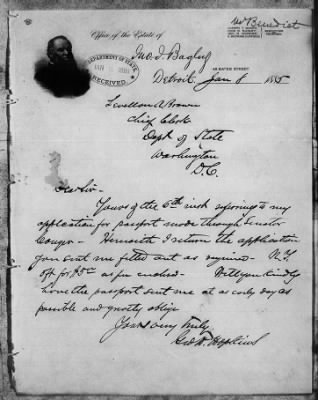 Mr Benedict
Office of the Estate of
Jno. J. Bagley
DEPARTMENT OF STATE
RECEIVED
Detroit, Jan 8 1885
Sevellon A Brown
Chief Clerk
Dept of State
Washington
D.C.
Dear Sir-
Yours of the 6th inst referring to my
application for passport made through Senator
Conger. Herewith I return the application
you sent me filled out as required. N.Y.
dft for $5 as per enclosed. Will you kindly
have the passport sent me at as early day as
possible and greatly oblige
Yours very truly
Geo. H. Hopkins